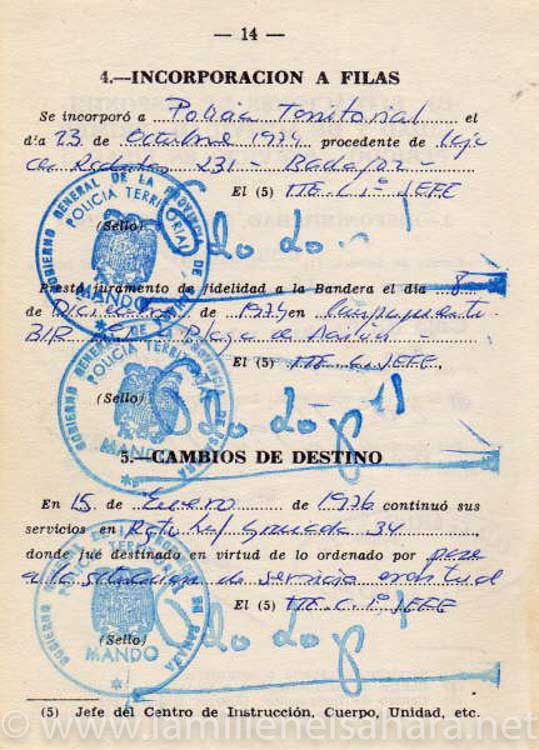 — 14 —
4.—INCORPORACION A FILAS
Se incorporó a Policia Territorial el
día 23 de Octubre 1974 procedente de Caja
de Recluta 231 - Badajoz -
El (5) TTE. C. 1º JEFE
GOBIERNO GENERAL DE LA PROVINCIA DE SAHARA
POLICIA TERRITORIAL
(Sello)
MANDO
Prestó juramento de fidelidad a la Bandera el día 8
de Diciembre de 1974 en Campamento
BIR Playa de Aaiún -
El (5) TTE. C. JEFE,
GOBIERNO GENERAL DE LA PROVINCIA DE SAHARA
POLICIA TERRITORIAL
(Sello)
MANDO
5.—CAMBIOS DE DESTINO
En 15 de Enero de 1976 continuó sus
servicios en Rgto Inf Granada 34,
donde fué destinado en virtud de lo ordenado por pase
a la situacion de servicio eventual
El (5) TTE. C. 1º, JEFE
GOBIERNO GENERAL DE LA PROVINCIA DE SAHARA
POLICIA TERRITORIAL
(Sello)
MANDO
(5) Jefe del Centro de Instrucción, Cuerpo, Unidad, etc.
© www.lamilienelsahara.net